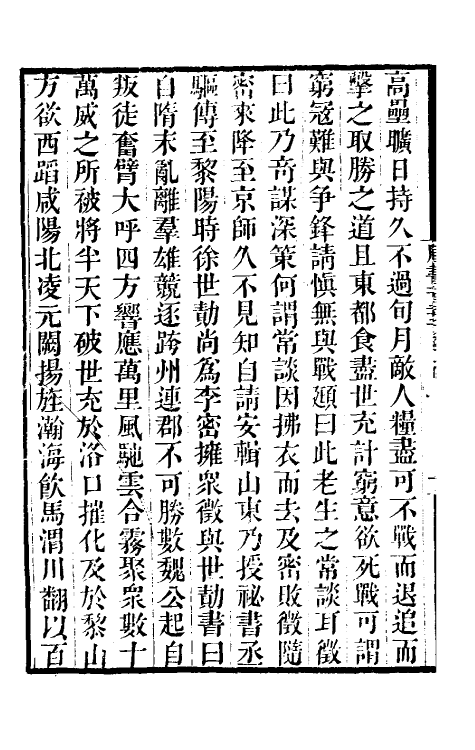 高壘曠日持久不過旬月敵人糧盡可不戰而退追而
擊之取勝之道且東都食盡世充計窮意欲死戰可謂
窮寇難與争鋒請慎無與戰頲曰此老生之常談耳徵
曰此乃奇謀深策何謂常談因拂衣而去及密敗徵隨
密來降至京師久不見知自請安輯山東乃授祕書丞
驅傳至黎陽時徐世勣尚爲李密擁衆徵與世勣書曰
自隋末亂離羣雄競逐跨州連郡不可勝數魏公起自
叛徒奮臂大呼四方響應萬里風馳雲合霧聚衆數十
萬威之所被將半天下破世充於洛口摧化及於黎山
方欲西蹈咸陽北凌元闕揚旌瀚海飲馬渭川翻以百